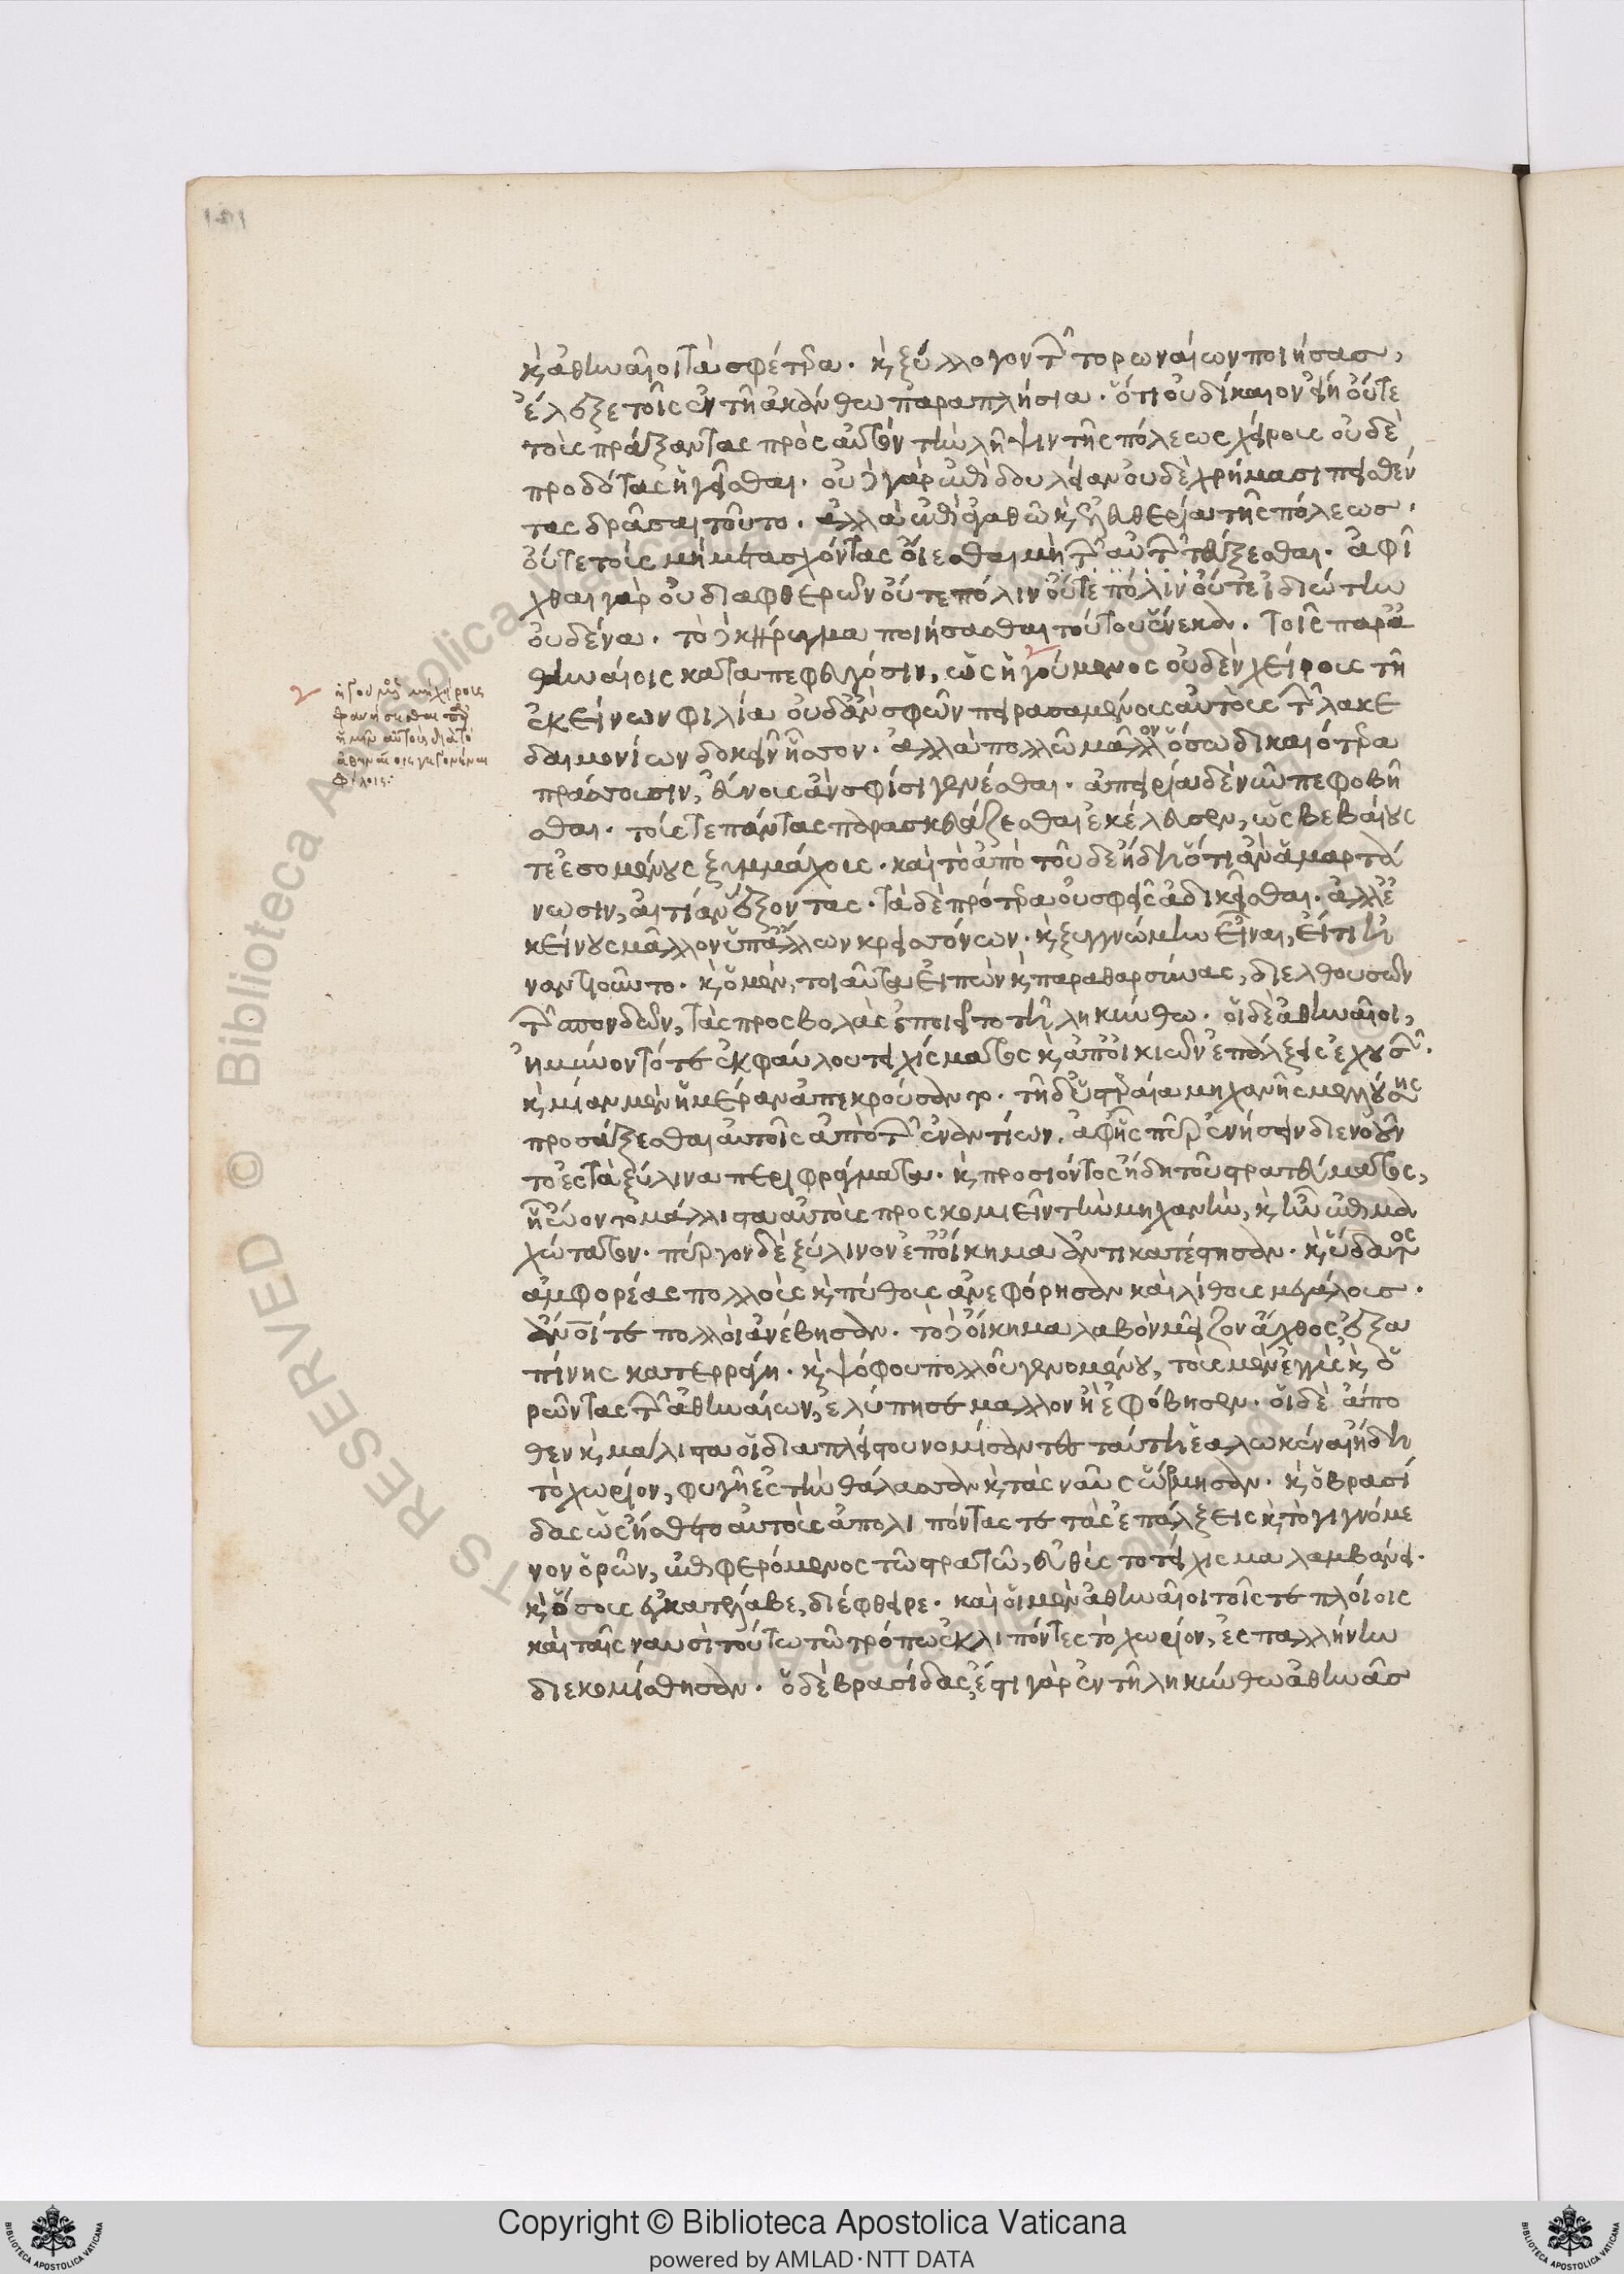 κ, ἀθηναῖοι τὰ σφέτερα. κ, ξύλλογον τῶν τορωναίων ποιήσας,
ἔλεξε τοῖς ἐν τῆ ἀκάνθω παραπλήσια. ὅτι οὐ δίκαιον εἴη οὔτε
τοὺς πράξαντας πρὸς αὐτὸν τὴν λῆψιν τῆς πόλεως χείρους οὐδὲ
προδότας ἡγεῖσθαι. οὐ γὰρ ἐπὶ δουλείαν οὐδὲ χρήμασι πεισθέν
τας δρᾶσαι τοῦτο. ἀλλ' ἐπὶ ἀγαθῶ κ, ἐλευθερία τῆς πόλεως.
οὔτε τοὺς μὴ μετασχόντας οἴεσθαι μὴ τῶν αὐτῶν τεύξεσθαι. ἀφῖ
χθαι γὰρ οὐ διαφθερῶν οὔτε πόλιν οὔτε πόλιν οὔτε ἰδιώτην
οὐδένα. τὸ δὲ κήρυγμα ποιήσασθαι τούτου ἕνεκα. τοῖς παρ' ἀ
θηναίοις καταπεφευγόσιν, ὡς ἡγούμενος οὐδὲν χείρους τῆ
ἐκείνων φιλία οὐδ' ἂν σφῶν πειρασαμένους αὐτοὺς τῶν λακε
δαιμονίων δοκεῖν ἧσσον. ἀλλὰ πολλῶ μᾶλλον ὅσω δικαιότερα
πράσσουσιν, εὔνους ἂν σφίσι γενέσθαι. ἀπειρία δὲ νῦν πεφοβῆ
σθαι. τούς τε πάντας παρασκευάζεσθαι ἐκέλευσεν, ὡς βεβαίους
τε ἐσομένους ξυμμάχους. καὶ τὸ ἀπὸ τοῦδε ἤδη ὅτι ἂν ἁμαρτά
νωσιν, αἰτίαν ἕξοντας. τὰ δὲ πρότερα οὐ σφεῖς ἀδικεῖσθαι. ἀλλ' ἐ
κείνους μᾶλλον ὑπ' ἄλλων κρεισσόνων. κ, ξυγγνώμην εἶναι, εἴ τι ἠ
ναντιοῦντο. κ, ὁ μὲν, τοιαῦτα εἰπὼν κ, παραθαρσύνας, διελθουσῶν
τῶν σπονδῶν, τὰς προσβολὰς ἐποιεῖτο τῆ ληκύθω. οἱ δὲ ἀθηναῖοι,
ἠμύνοντό τε ἐκ φαύλου τειχίσματος κ, ἀπ' οἰκιῶν ἐπάλξεις ἐχουσῶν.
κ, μίαν μὲν ἡμέραν ἀπεκρούσαντο. τῆ δ' ὑστεραία μηχανῆς μελλούσης
προσάξεσθαι αὐτοῖς ἀπὸ τῶν ἐναντίων, ἀφ' ἧς πῦρ ἐνήσειν διενοοῦν
το ἐς τὰ ξύλινα περιφράγματα. κ, προσιόντος ἤδη τοῦ στρατεύματος,
ἧ ᾤοντο μάλιστα αὐτοὺς προσκομιεῖν τὴν μηχανὴν, κ, ἦν ἐπιμα
χώτατον. πύργον δὲ ξύλινον ἐπ' οἴκημα ἀντικατέστησαν. κ, ὕδατος
ἀμφορέας πολλοὺς κ, πίθους ἀνεφόρησαν καὶ λίθους μεγάλους.
ἄνοί τε πολλοὶ ἀνέβησαν. τὸ δὲ οἴκημα λαβὸν μεῖζον ἄχθος, ἐξα
πίνης κατερράγη. κ, ψόφου πολλοῦ γενομένου, τοὺς μὲν ἐγγὺς κ, ὁ
ρῶντας τῶν ἀθηναίων, ἐλύπησε μαλλον ἢ ἐφόβησεν. οἱ δὲ ἄπο
θεν κ, μάλιστα οἱ διαπλείστου νομίσαντες ταύτη ἑαλωκέναι ἤδη
τὸ χωρίον, φυγῆ ἐς τὴν θάλασσαν κ, τὰς ναῦς ὥρμησαν. κ, ὁ βρασί
δας ὡς ἤσθετο αὐτοὺς ἀπολιπόντας τε τὰς ἐπάλξεις κ, τὸ γιγνόμε
νον ὁρῶν, ἐπιφερόμενος τῶ στρατῶ, εὐθὺς τὸ τείχισμα λαμβάνει.
κ, ὅσους ἐγκατέλαβε, διέφθειρε. καὶ οἱ μὲν ἀθηναῖοι τοῖς τε πλοίοις
καὶ ταῖς ναυσὶ τούτω τῶ τρόπω ἐκλιπόντες τὸ χωρίον, ἐς παλλήνην
διεκομίσθησαν. ὁ δὲ βρασίδας, ἔστι γὰρ ἐν τῆ ληκύθω ἀθηνᾶς
ἡγούμενος μὴ χείρους
φανήσεσθαι
ἡμῖν αὐτοὺς διὰ τὸ
ἀθηναίοις γεγονέναι
φίλους:
Copyright © Biblioteca Apostolica Vaticana
powered by AMLAD·NTT DATA